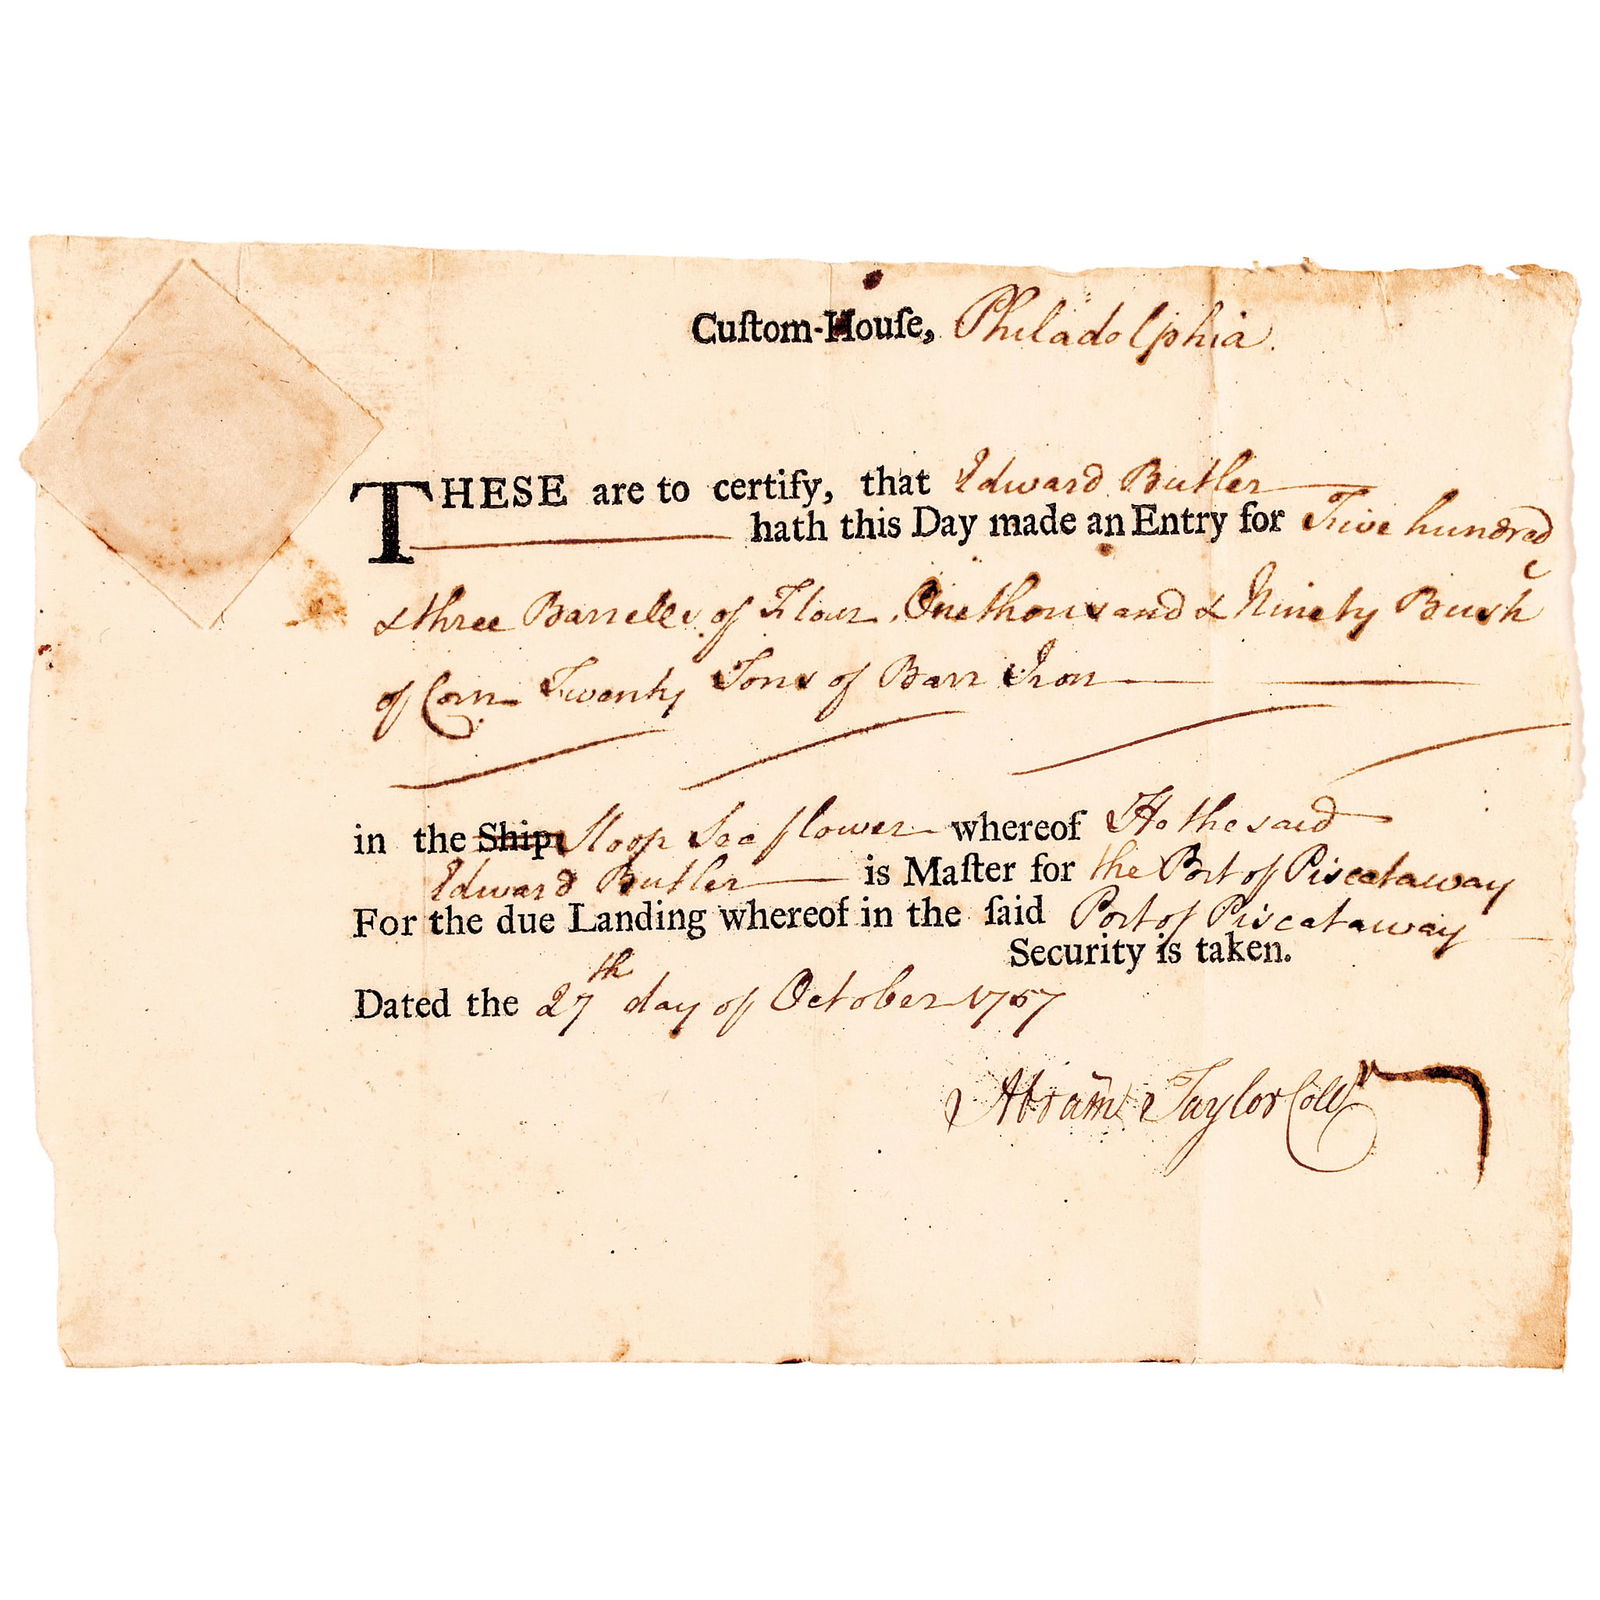 Cuſtom-Houſe, Philadelphia.
THESE are to certify, that Edward Butler
hath this Day made an Entry for Five hundred
& three Barrells of Flour, One thousand & Ninety Bush
of Corn Twenty Tons of Barr Iron
in the Ship Sloop Sea flower whereof He the said
Edward Butler is Maſter for the Port of Piscataway
For the due Landing whereof in the ſaid Port of Piscataway
Security is taken.
Dated the 27th day of October 1757
Abram Taylor Collr